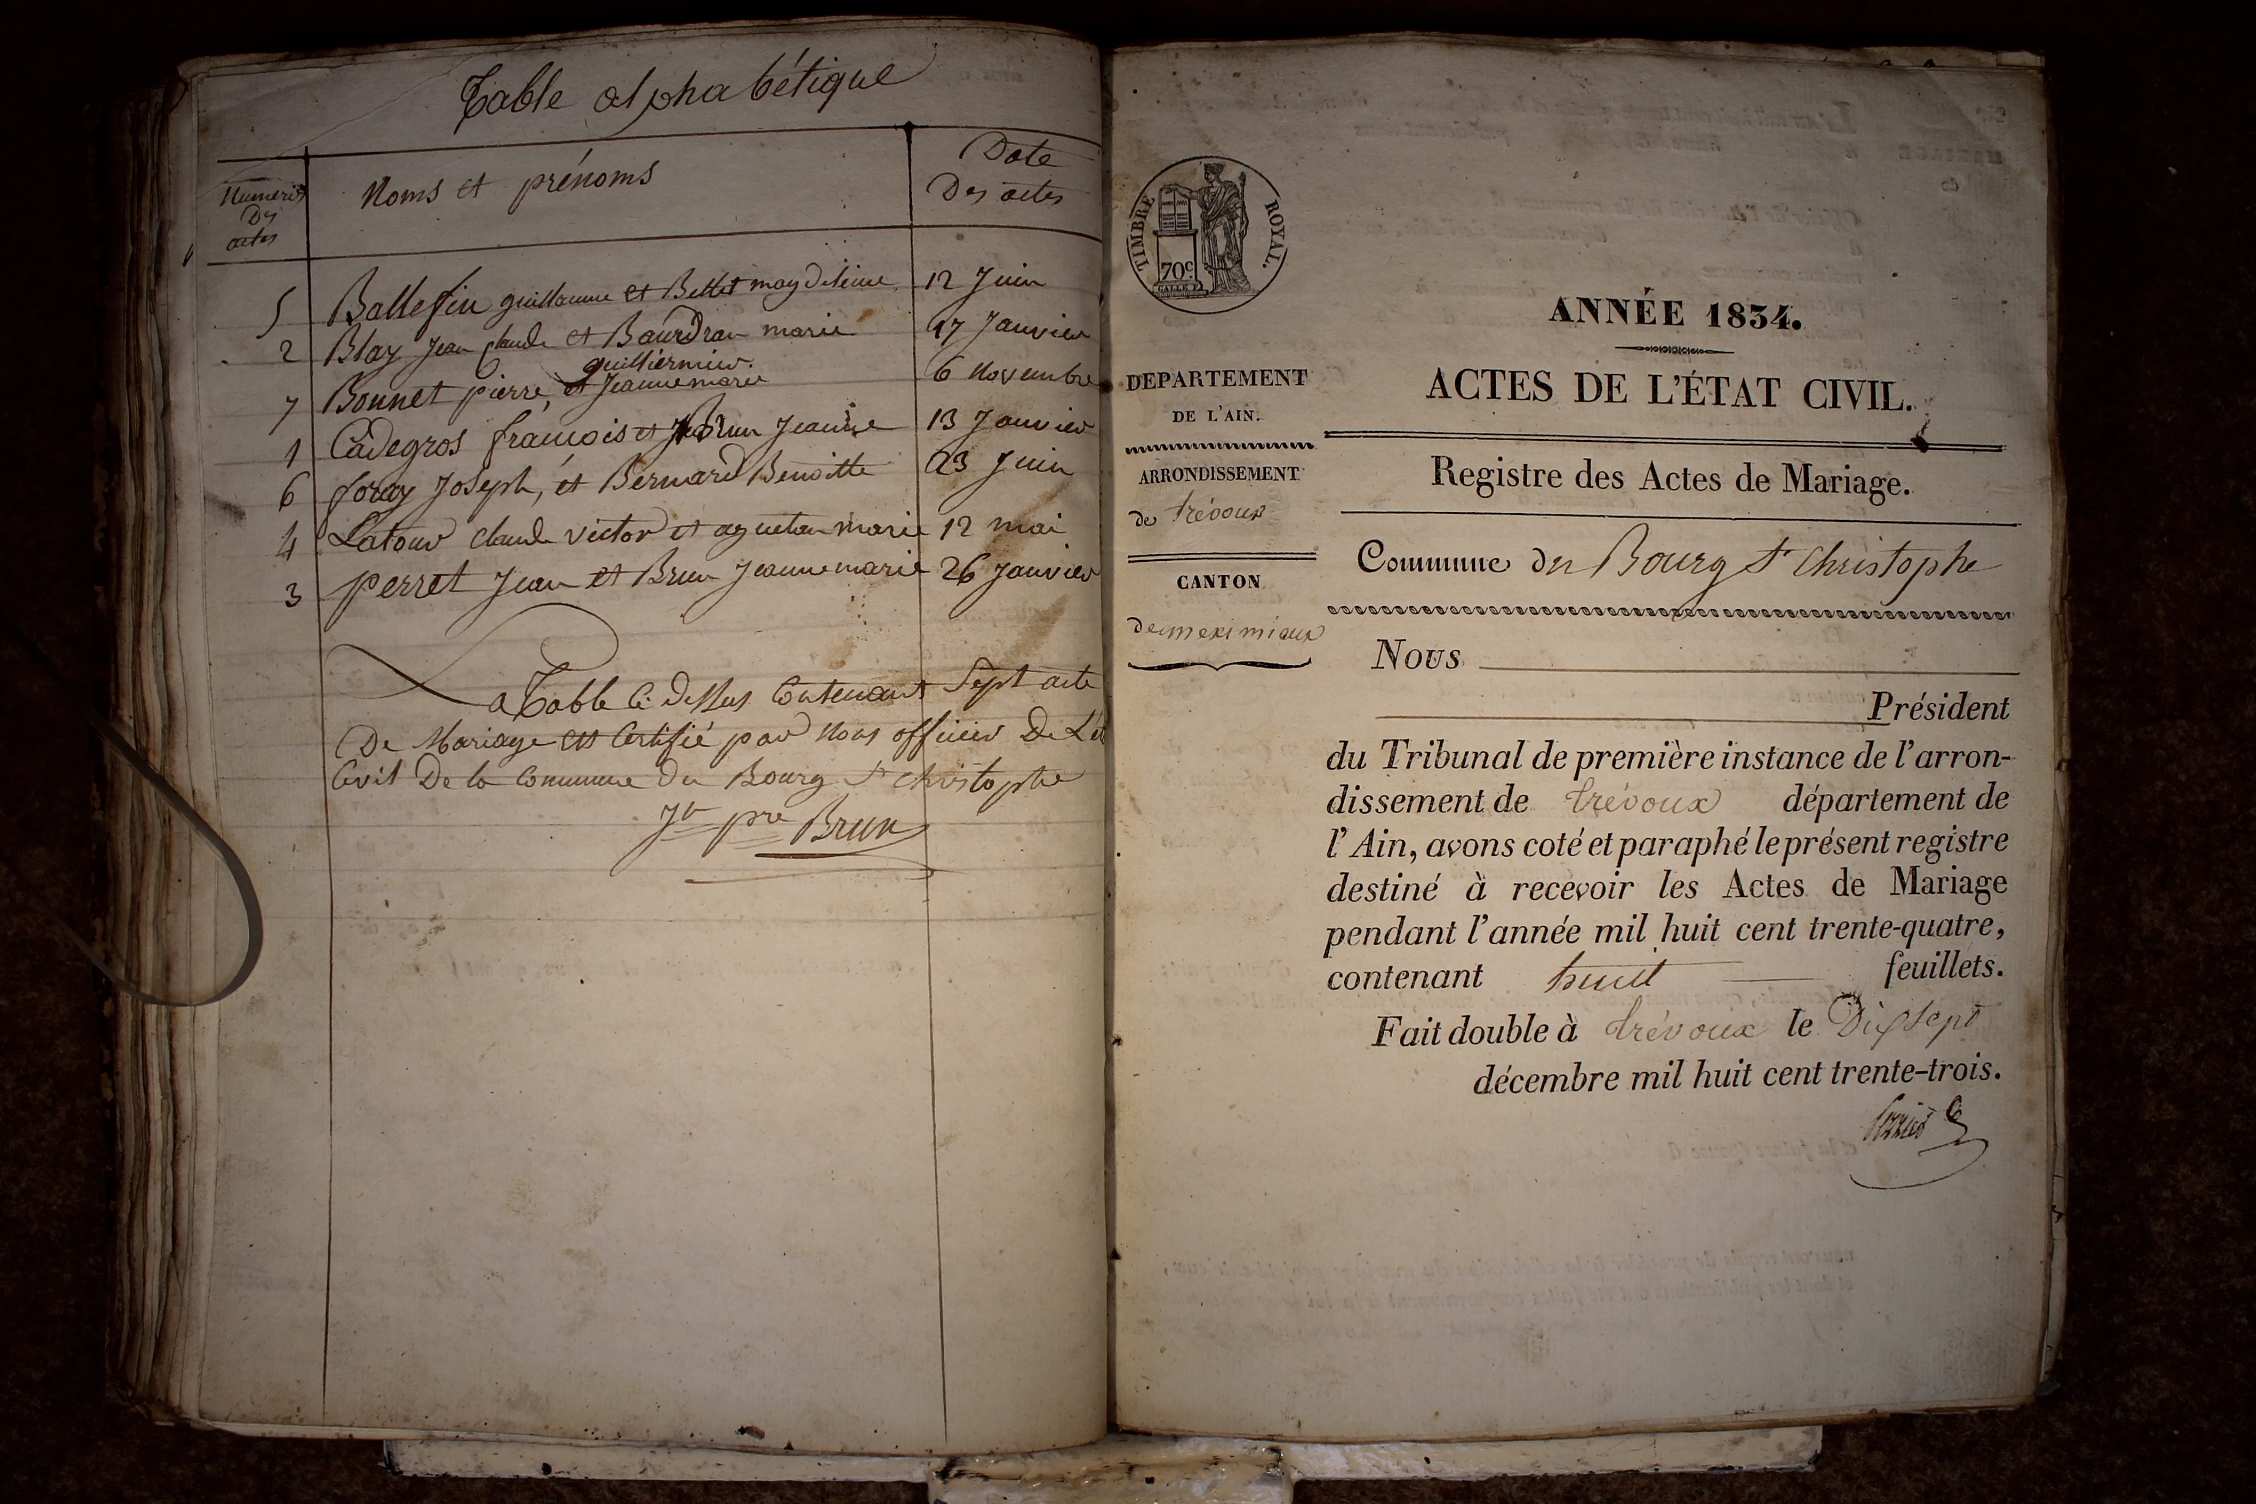 Table alphabétique
Numeros
Des
actes
Noms et prénoms
Date
Des actes
5 Ballefin guillaume et Bellet magdeleine 12 Juin
2 Blay Jean Claude et Baurdran marie 17 Janvier
guilliermier
7 Bonnet pierre, et Jeanne marie 6 Novembre
1 Cadegros françois et Brun Jeanne 13 Janvier
6 foray Joseph, et Bernard Benoitte 23 Juin
4 Latour claude victor et aguetan marie 12 mai
3 perret Jean et Brun Jeanne marie 26 Janvier
La Table Ci Dessus Contenant Sept acte
De Mariage est Certifié par Nous officier De L'ét
Civil De la Commune du Bourg St christophe
Jn pre Brun
TIMBRE ROYAL.
70c.
ANNÉE 1834.
ACTES DE L'ÉTAT CIVIL.
DEPARTEMENT
DE L'AIN.
ARRONDISSEMENT
de trévoux
CANTON
de meximiaux
Registre des Actes de Mariage.
Commune du Bourg St Christophe
Nous
Président
du Tribunal de première instance de l'arron-
dissement de trévoux département de
l'Ain, avons coté et paraphé le présent registre
destiné à recevoir les Actes de Mariage
pendant l'année mil huit cent trente-quatre,
contenant huit feuillets.
Fait double à trévoux le Dix sept
décembre mil huit cent trente-trois.